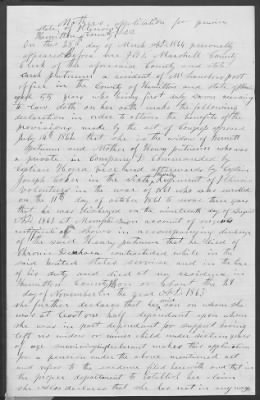 Mothers application for pension
State of Illinois
Hamilton County
On this 28th day of March AD 1864 personally
appeared before me J. W. Marshall County
Clerk of the aforesaid County and state
Sarah putnum a resident of Mcleansboro post
office in the County of Hamilton and state of Illinois
aged 55 years who being first duly sworn according
to law doth on her oath make the following
declaration in order to obtain the benefits of the
provisions made by the act of Congress approved
July 14 1862 that she is the widow of
putnum and Mother of Henry putnum who was
a private in Company D Commanded by
Captain
Regiment of Illinois
Volunteers in the war of 1861 who was enrolled
on the 11th day of October 1861 to serve three years
that he was discharged on the nineteenth day of August
AD 1862 at
as shown in accompanying discharge
of the said Henry putnum that he died of
Chronic diarrhoea contracted while in the
said United States service and in the line
of his duty and died at my residence in
Hamilton County Ills on or about the 24
day of November in the year AD 1863
she further declares that her said son on whom she
was at least one half dependant upon whom
she was in part dependant for support having
left no widow or minor child under sixteen years
of age surviving declarant makes this application
for a pension under the above mentioned act
and refers to the evidence filed herewith and that in
the proper department to establish her claim
she also declares that she has not in any way